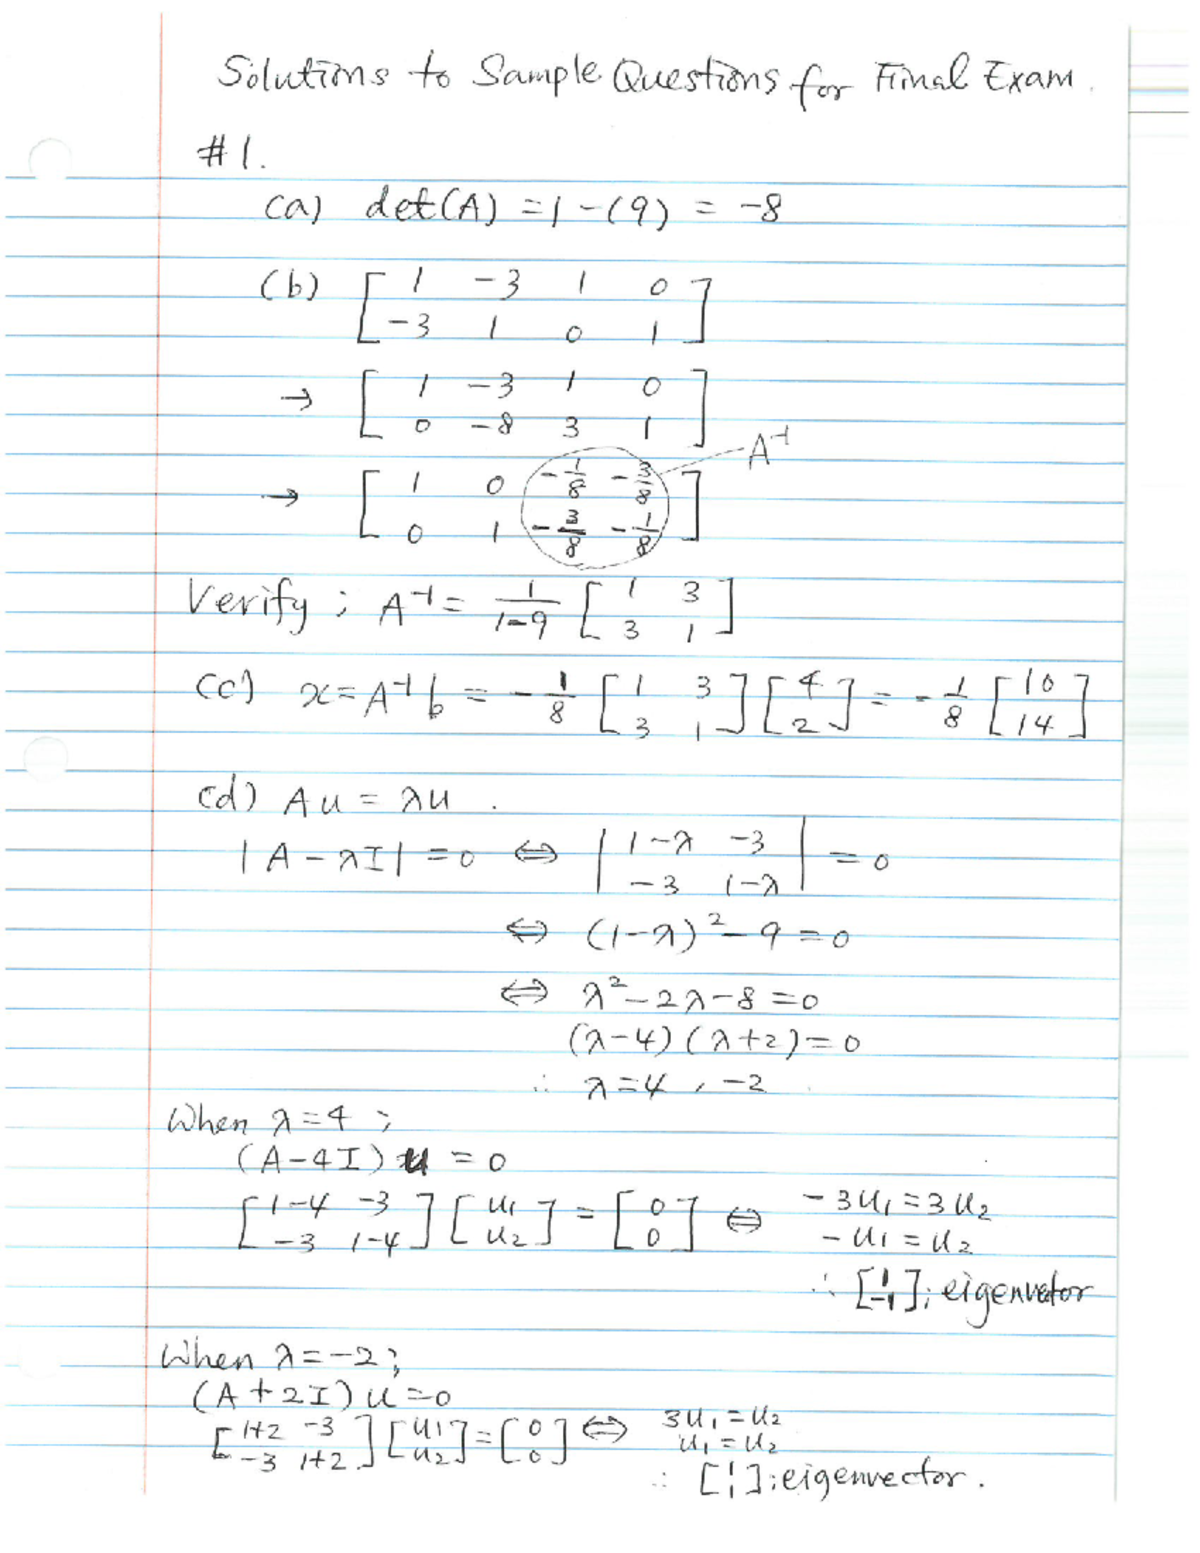 Solutions to Sample Questions for Final Exam.
#1.
(a) det(A) = 1 - (9) = -8
(b) [ 1 -3 1 0
-3 1 0 1 ]
→ [ 1 -3 1 0
0 -8 3 1 ]
A⁻¹
→ [ 1 0 -1/8 -3/8
0 1 -3/8 -1/8 ]
Verify ; A⁻¹ = 1/(1-9) [ 1 3
3 1 ]
(c) x = A⁻¹b = -1/8 [ 1 3 ; 3 1 ] [ 4 ; 2 ] = -1/8 [ 10 ; 14 ]
(d) Au = λu .
|A - λI| = 0 ⇔ | 1-λ -3 ; -3 1-λ | = 0
⇔ (1-λ)² - 9 = 0
⇔ λ² - 2λ - 8 = 0
(λ-4)(λ+2) = 0
∴ λ = 4 , -2
When λ = 4 ;
(A-4I) u = 0
[ 1-4 -3 ; -3 1-4 ] [ u₁ ; u₂ ] = [ 0 ; 0 ] ⇔ -3u₁ = 3u₂
-u₁ = u₂
∴ [ 1 ; -1 ] ; eigenvetor
When λ = -2 ;
(A+2I) u = 0
[ 1+2 -3 ; -3 1+2 ] [ u₁ ; u₂ ] = [ 0 ; 0 ] ⇔ 3u₁ = u₂
u₁ = u₂
∴ [ 1 ; 1 ] ; eigenvector .